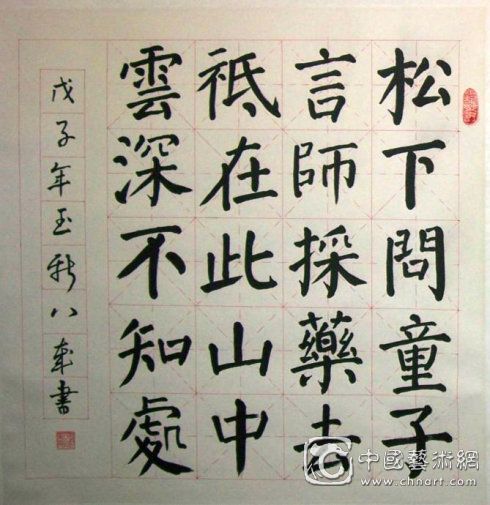 松下問童子
言師採藥去
祗在此山中
雲深不知處
戊子年玉八書
中國藝術網
www.chnart.com